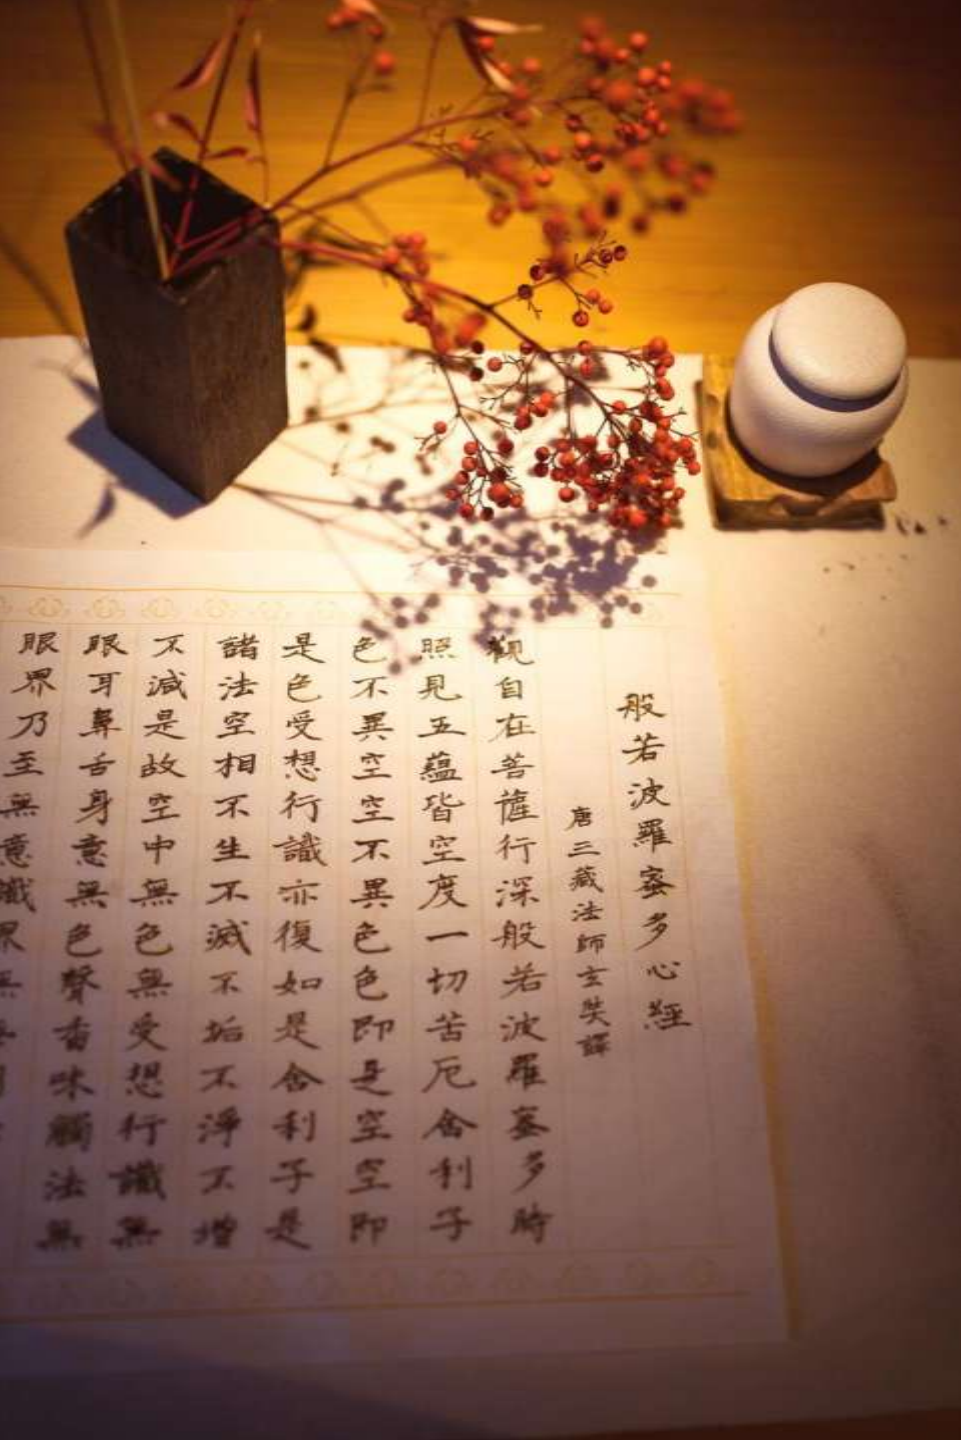 般若波羅蜜多心經
唐三藏法師玄奘譯
觀自在菩薩行深般若波羅蜜多時
照見五蘊皆空度一切苦厄舍利子
色不異空空不異色色即是空空即
是色受想行識亦復如是舍利子是
諸法空相不生不滅不垢不淨不增
不減是故空中無色無受想行識無
眼耳鼻舌身意無色聲香味觸法無
眼界乃至無意識界無